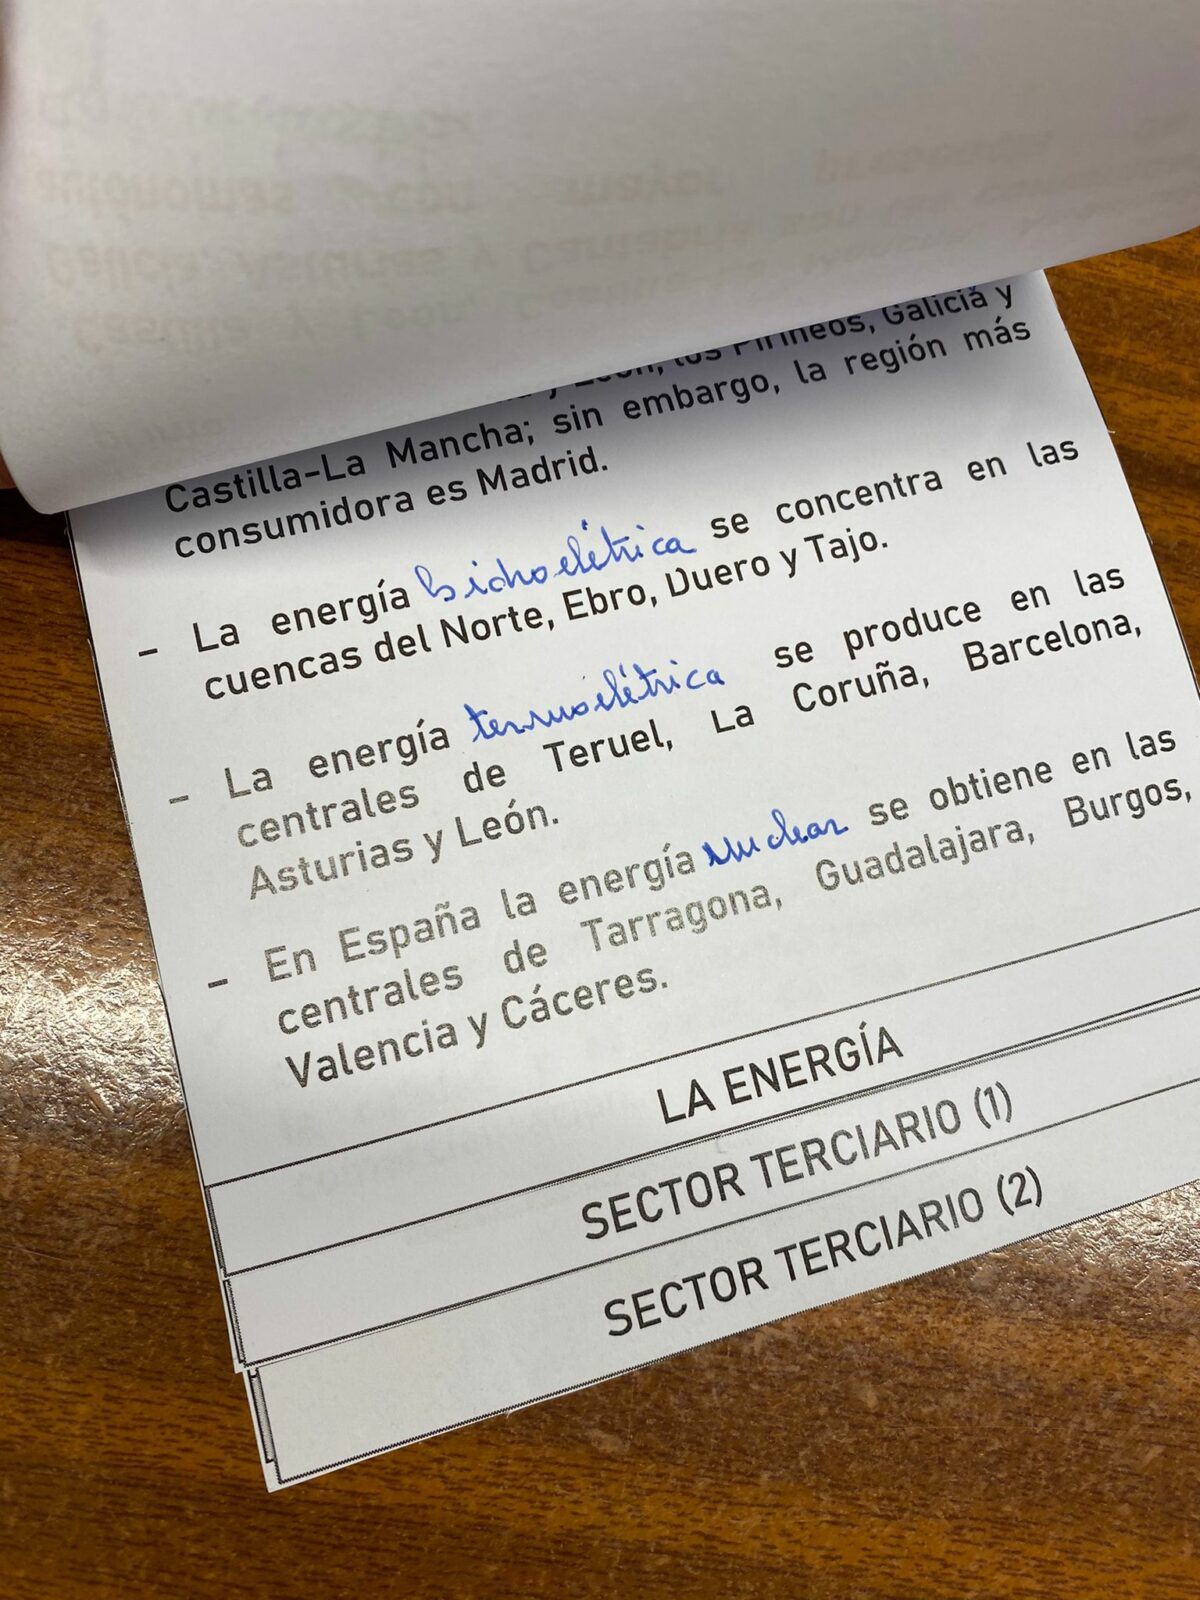 León, los Pirineos, Galicia y
Castilla-La Mancha; sin embargo, la región más
consumidora es Madrid.
- La energía hidroelétrica se concentra en las
cuencas del Norte, Ebro, Duero y Tajo.
- La energía termoelétrica se produce en las
centrales de Teruel, La Coruña, Barcelona,
Asturias y León.
- En España la energía nuclear se obtiene en las
centrales de Tarragona, Guadalajara, Burgos,
Valencia y Cáceres.
LA ENERGÍA
SECTOR TERCIARIO (1)
SECTOR TERCIARIO (2)